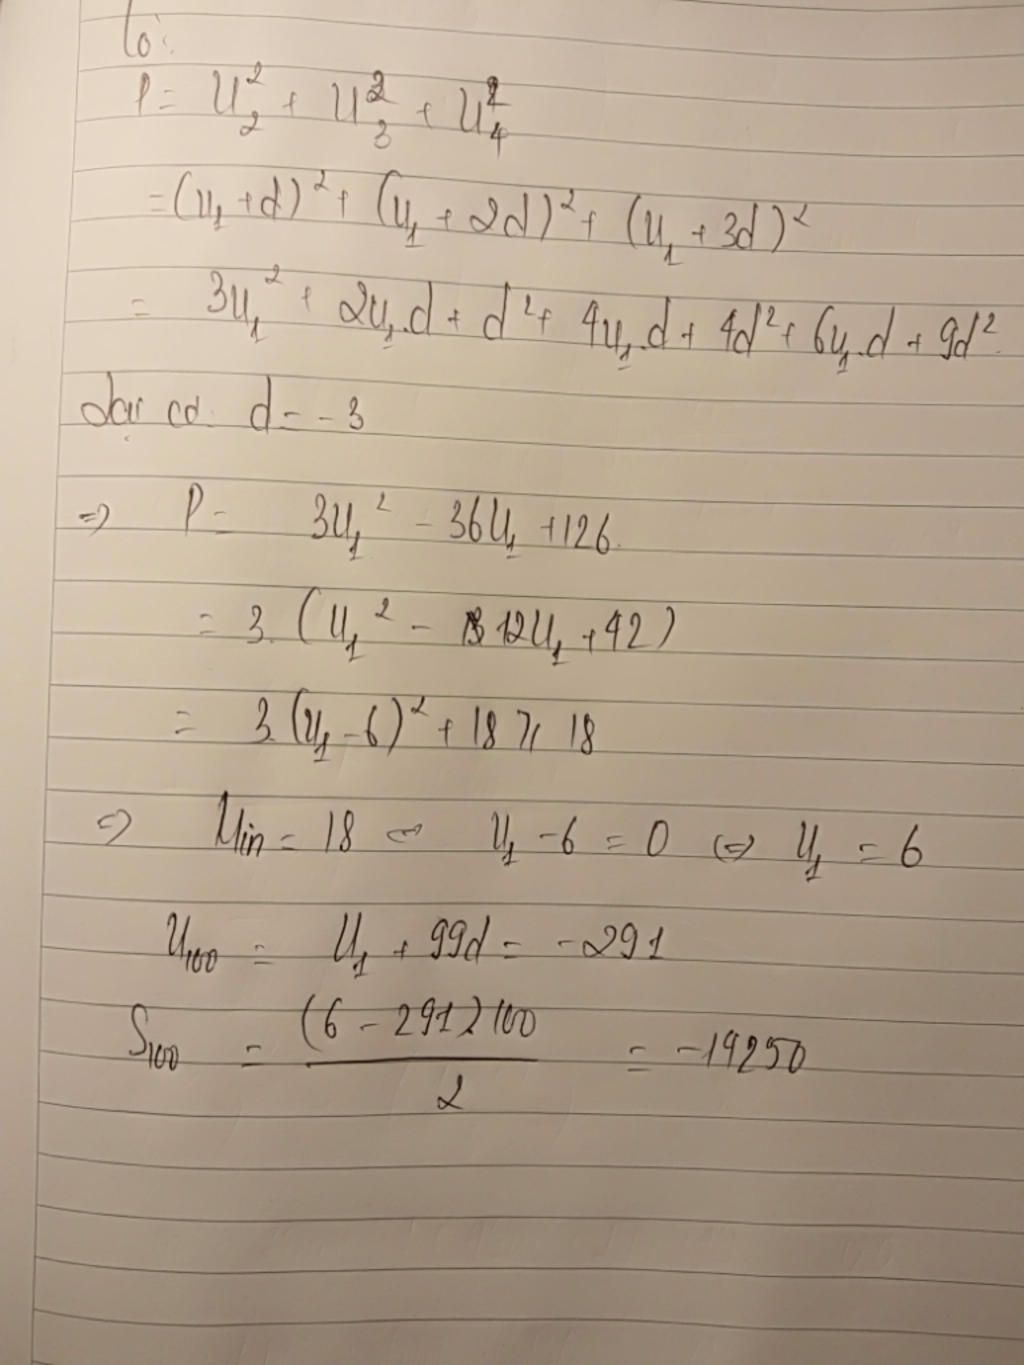 Có:
P = U₂² + U₃² + U₄²
= (u₁ + d)² + (u₁ + 2d)² + (u₁ + 3d)²
= 3u₁² + 2u₁.d + d² + 4u₁.d + 4d² + 6u₁.d + 9d²
Lại có: d = -3
⇒ P = 3u₁² - 36u₁ + 126.
= 3.(u₁² - 12u₁ + 42)
= 3.(u₁ - 6)² + 18 ≥ 18
⇒ Min = 18 ⇔ u₁ - 6 = 0 ⇔ u₁ = 6
U₁₀₀ = U₁ + 99d = -291
S₁₀₀ = (6 - 291)100 / 2 = -14250